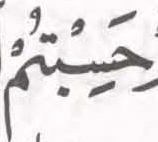 حَسِبْتُمْ